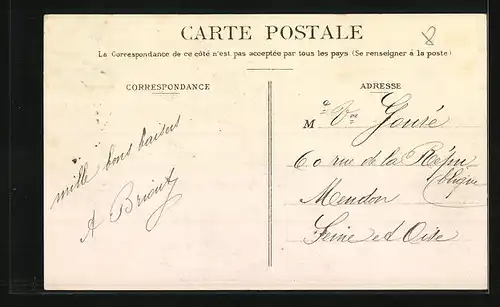 CARTE POSTALE
La Correspondance de ce côté n'est pas acceptée par tous les pays (Se renseigner à la poste)
CORRESPONDANCE
mille bons baisers
A Briout
ADRESSE
M e Vve Gouré
60 rue de la Répu
blique
Meudon
Seine et Oise